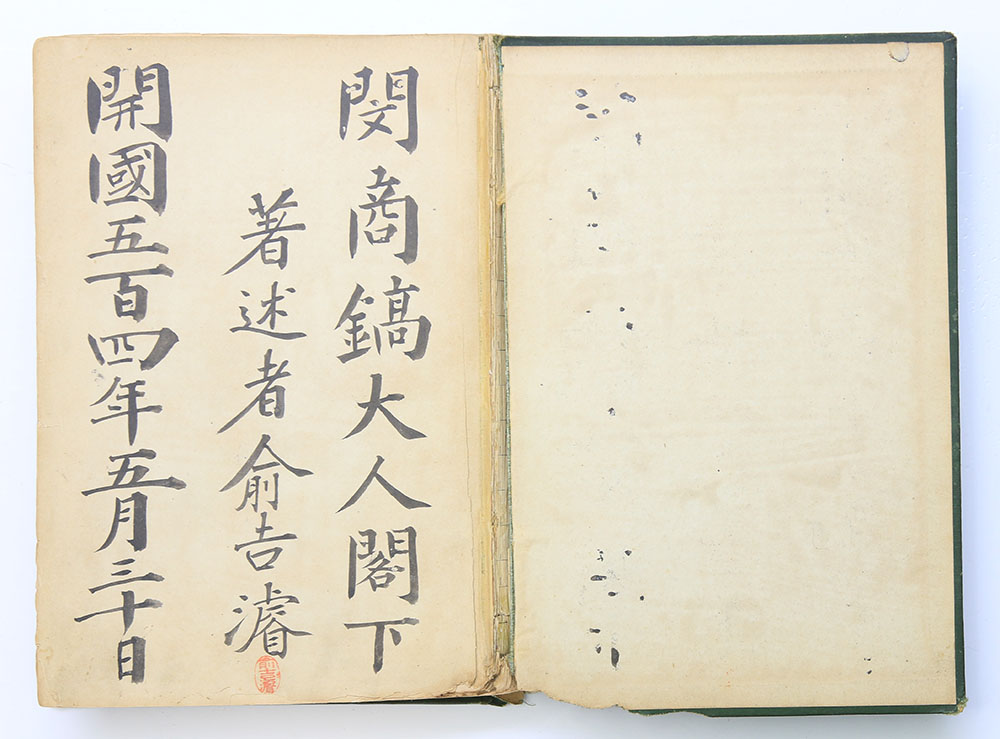 閔商鎬大人閣下
著述者俞吉濬
開國五百四年五月三十日
俞吉濬